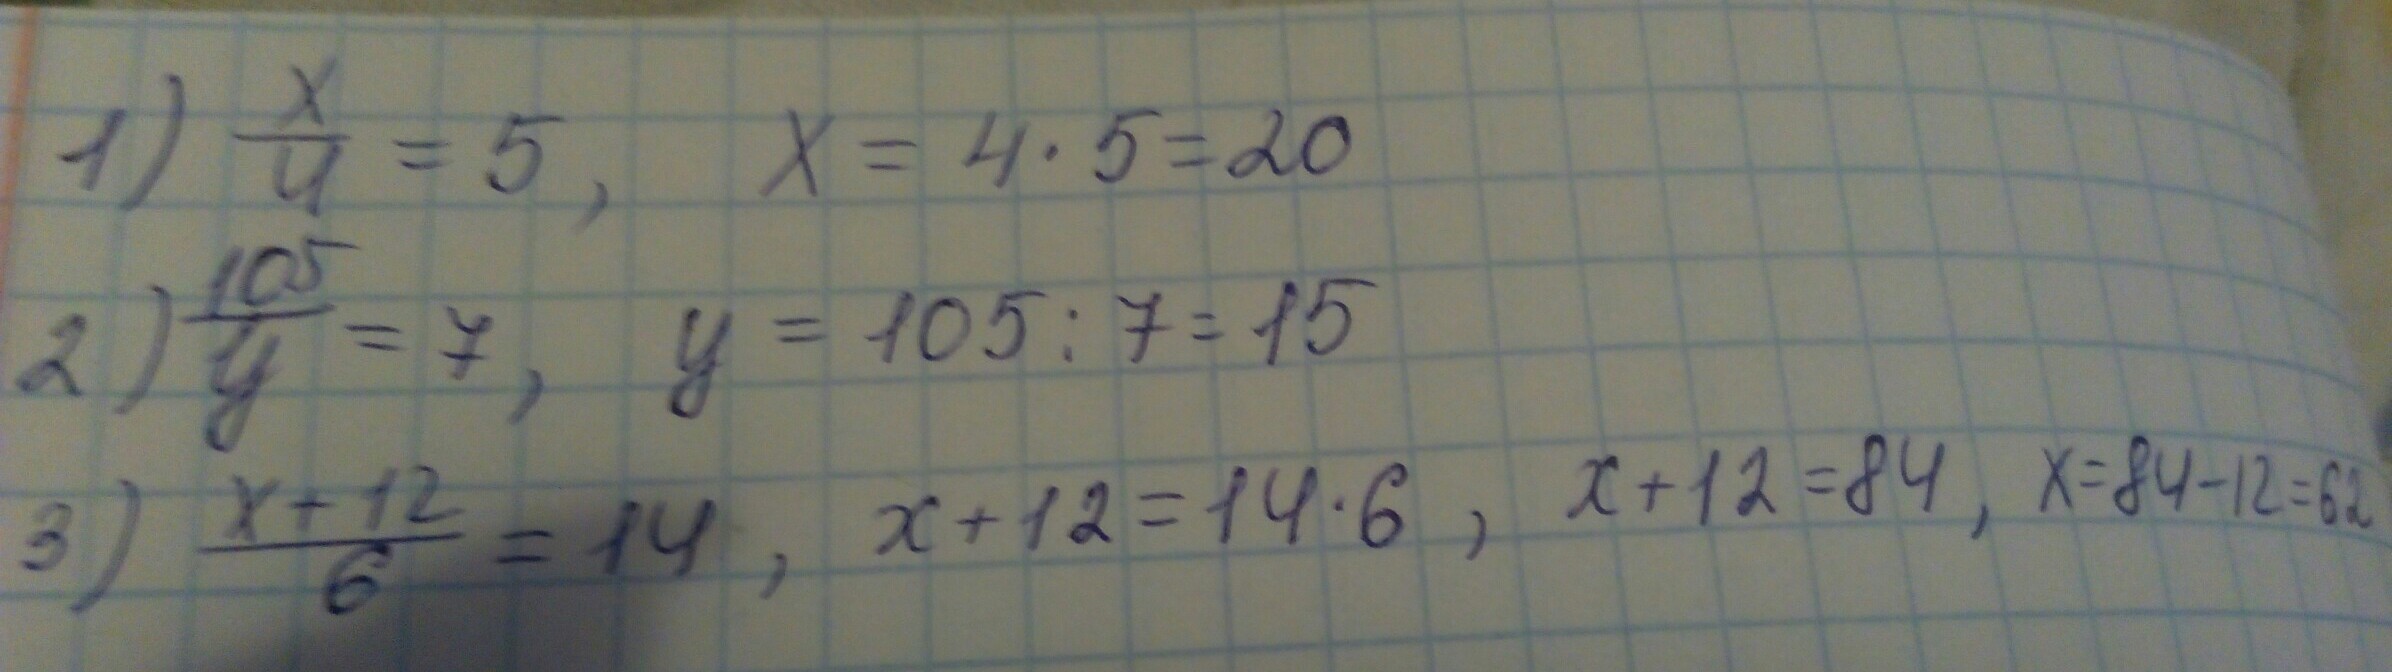 1) x/4 = 5, x = 4·5=20
2) 105/y = 7, y = 105:7=15
3) x+12/6 = 14, x+12=14·6, x+12=84, x=84-12=62